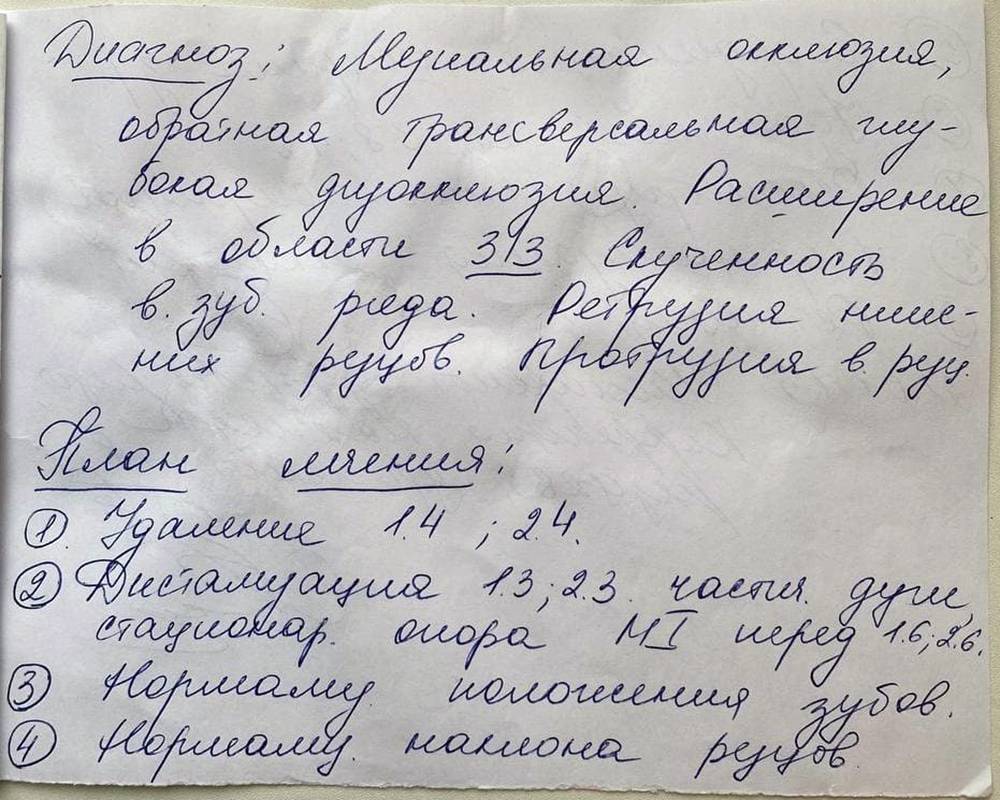 Диагноз: Медиальная окклюзия,
обратная трансверсальная глу-
бокая дизокклюзия. Расширение
в области 3|3. Скученность
в. зуб. ряда. Ретрузия ниж-
них резцов. Протрузия в. рез.
План лечения:
① Удаление 1.4 ; 2.4.
② Дистализация 1.3; 2.3. частич. дуги,
стационар. опора МI перед 1.6; 2.6.
③ Нормализ. положения зубов.
④ Нормализ. наклона резцов.